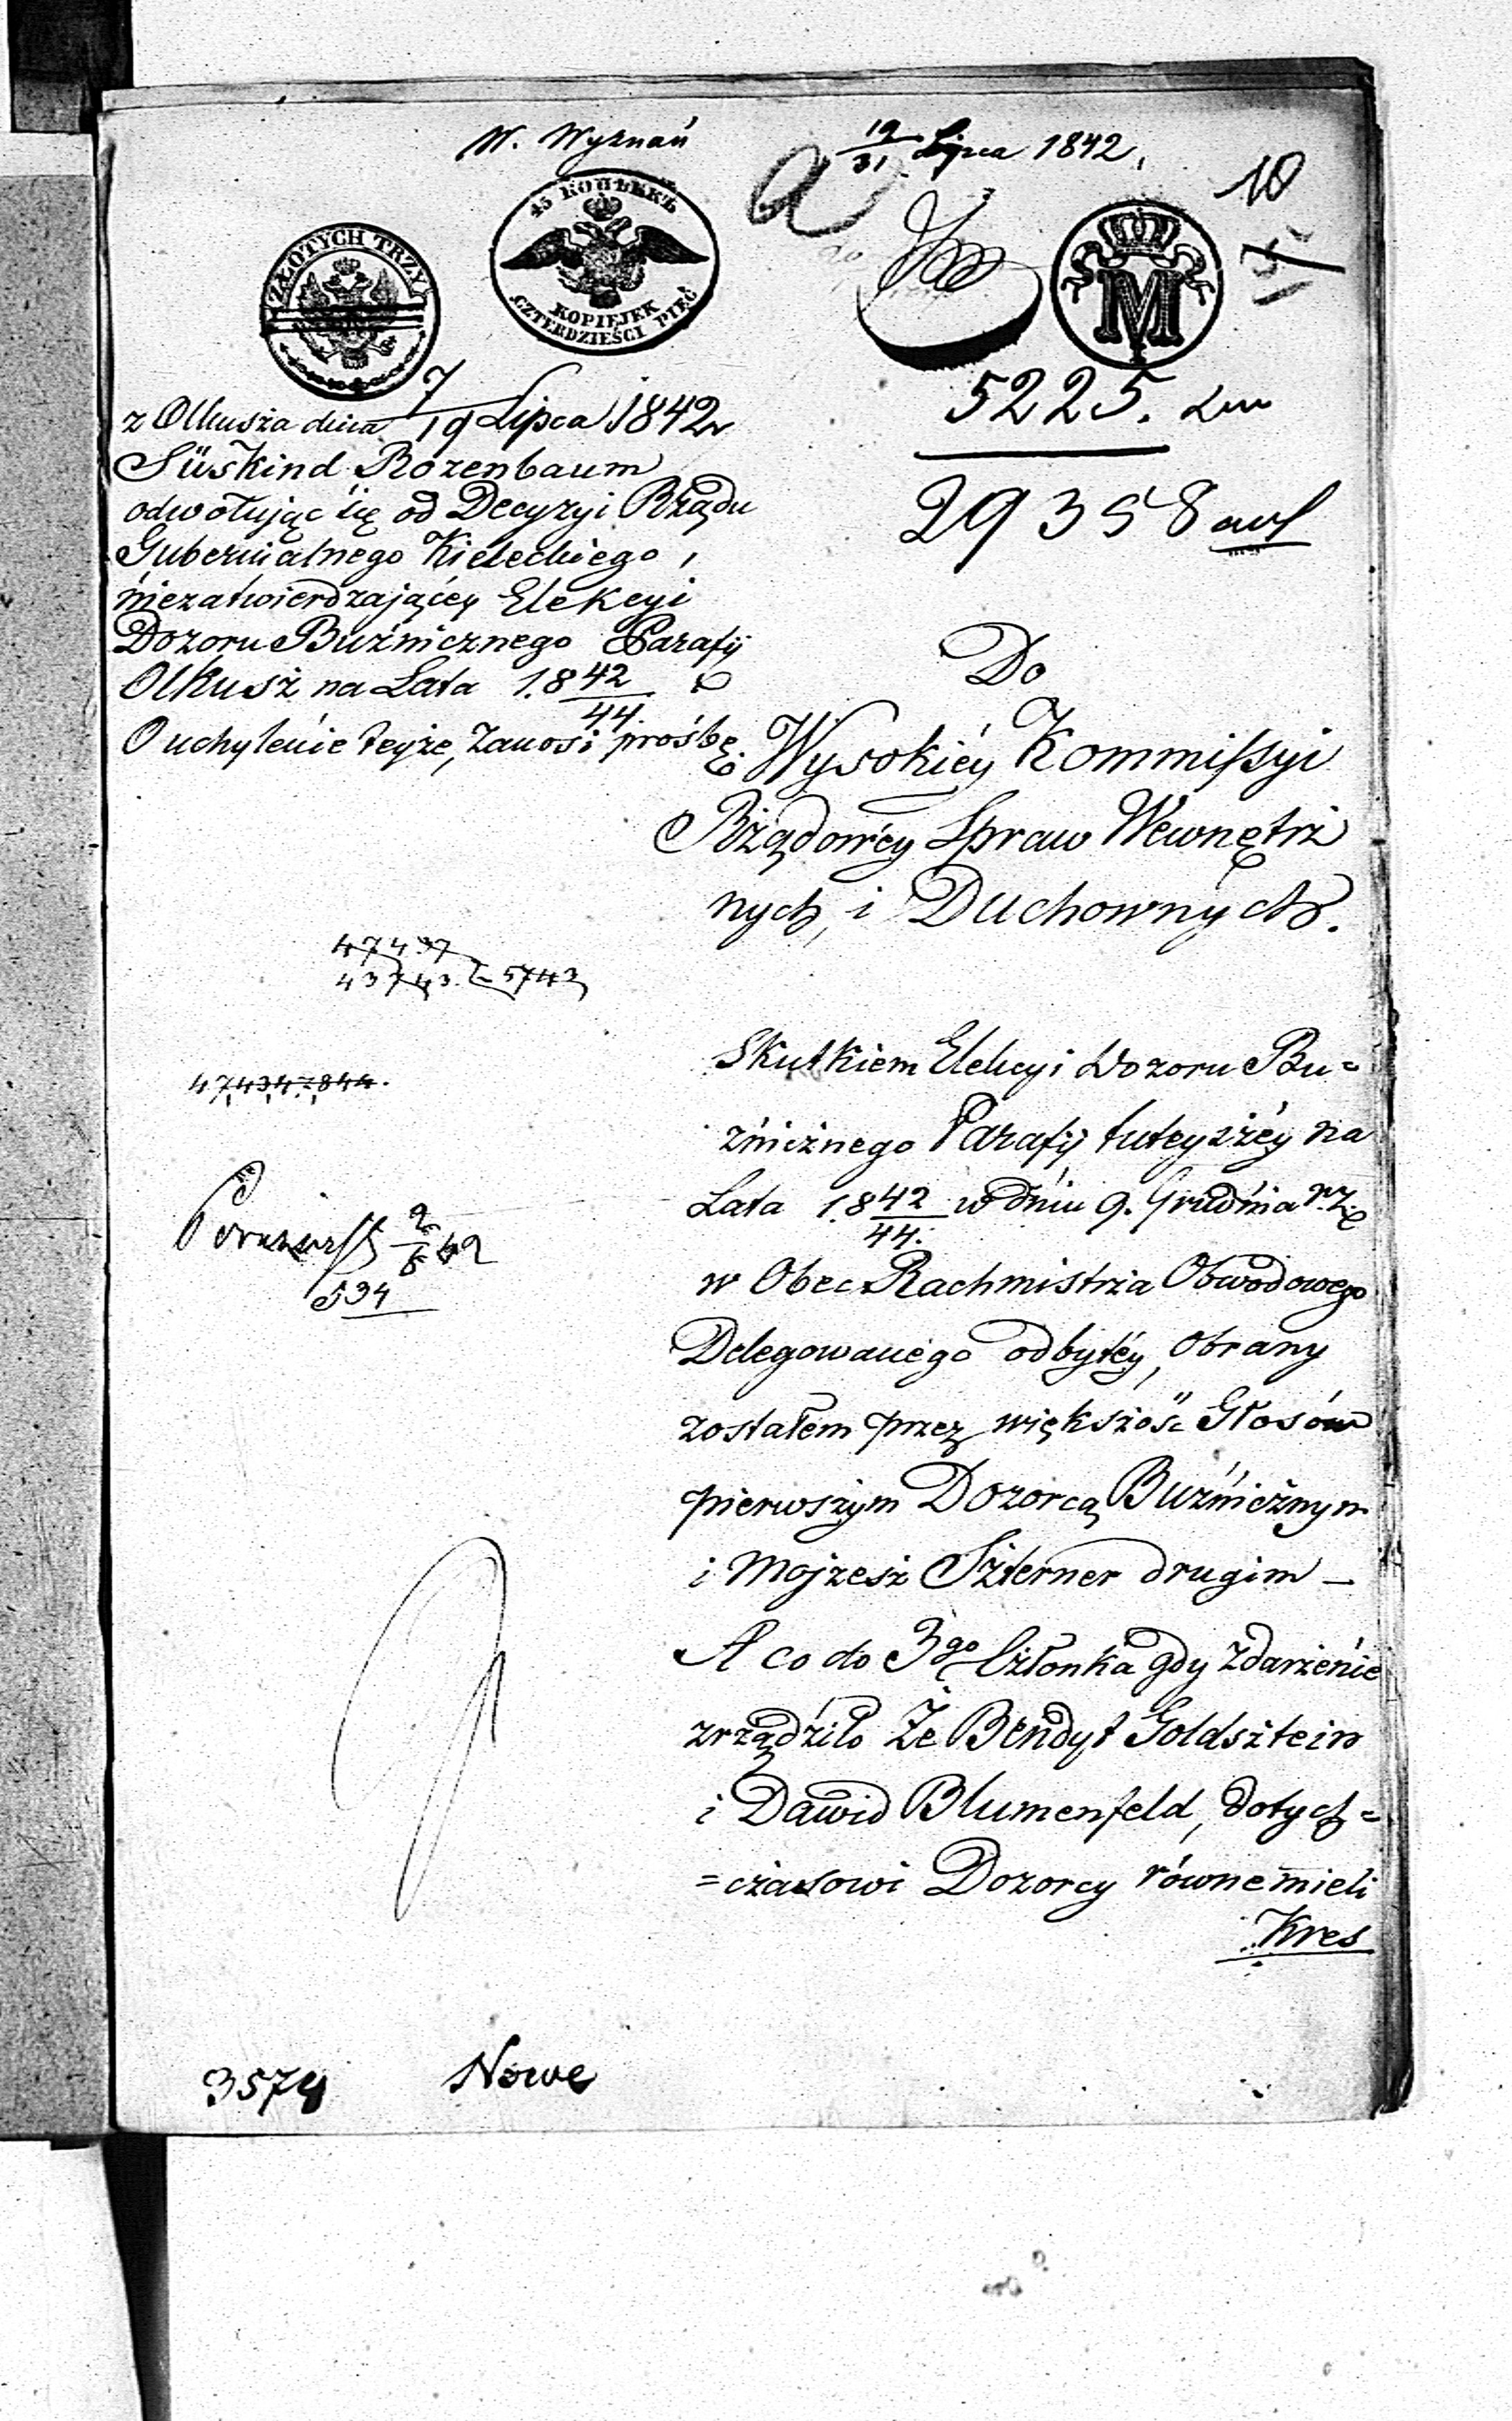 W. Wyznań
19/31 Lipca 1842.
10
ZŁOTYCH TRZY
45 КОПѢЕКЪ
KOPIEJEK
CZTERDZIEŚCI PIĘĆ
M
5225.
29358
z Olkusza dnia 7/19 Lipca 1842
Süskind Rozenbaum
odwołując się od Decyzyi Rządu
Gubernialnego Kieleckiego,
niezatwierdzającey Elekcyi
Dozoru Buźnicznego Parafij
Olkusz na Lata 1.8 42/44.
O uchylenie teyże, zanosi prośbę.
Do
Wysokiéy Kommissyi
Rządowéy Spraw Wewnętrz
nych, i Duchownych.
47437
43743. 5743
474347844.
2/6 42
594
Skutkiem Elekcyi Dozoru Bu=
źnicznego Parafij tuteyszéy na
Lata 1.8 42/44. w dniu 9. Grudnia r.z.
w Obec Rachmistrza Obwodowego
Delegowanego odbytéy, obrany
zostałem przez większość Głosów
pierwszym Dozorcą Buźnicznym
i Mojzesz Szterner drugim –
A co do 3go Członka gdy zdarzenie
zrządziło Że Bendyt Goldsztein
i Dawid Blumenfeld, dotych=
=czasowi Dozorcy równe mieli
Kres
3574 Nowe